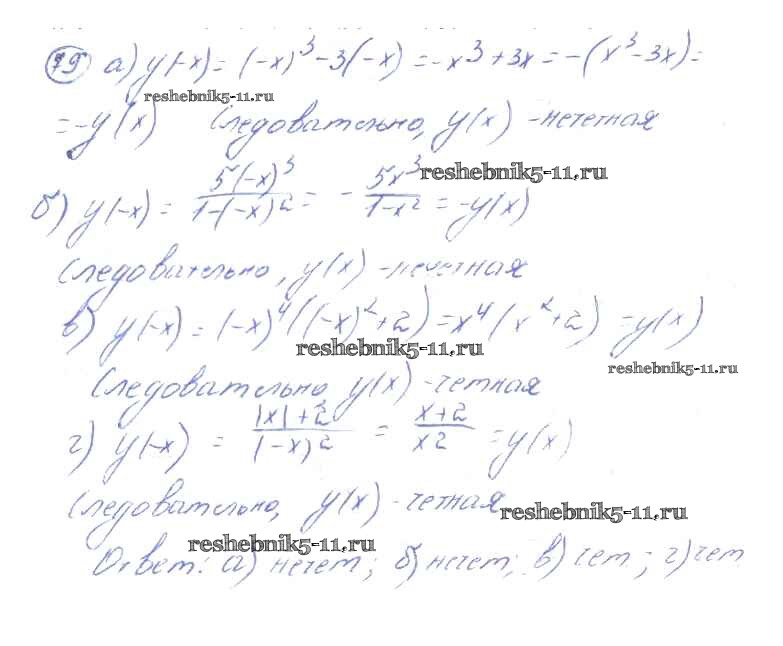 79 а) y(-x) = (-x)³ - 3(-x) = -x³ + 3x = -(x³ - 3x) =
reshebnik5-11.ru
= -y(x) Следовательно, y(x) - нечетная
reshebnik5-11.ru
б) y(-x) = 5(-x)³ / 1-(-x)² = - 5x³ / 1-x² = -y(x)
Следовательно, y(x) - нечетная
в) y(-x) = (-x)⁴((-x)²+2) = x⁴(x²+2) = y(x)
reshebnik5-11.ru
reshebnik5-11.ru
Следовательно, y(x) - четная
г) y(-x) = |x|+2 / (-x)² = x+2 / x2 = y(x)
Следовательно, y(x) - четная
reshebnik5-11.ru
reshebnik5-11.ru
Ответ: а) нечет; б) нечет; в) чет; г) чет